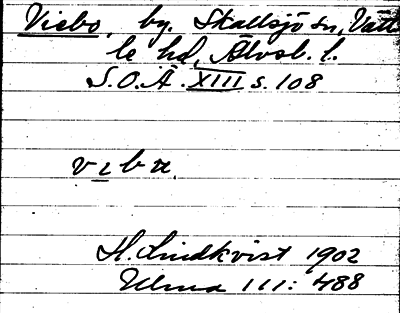 Viebo, by. Skallsjö sn, Vätt-
le hd, Älvsb. l.
S.O.Ä. XIII s. 108
v ɩ b u.
H. Lindkvist 1902
Ulma 111: 488